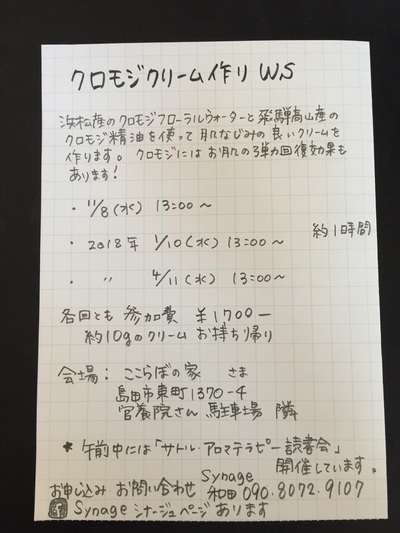 クロモジクリーム作り WS
浜松産のクロモジフローラルウォーターと飛騨高山産の
クロモジ精油を使って肌なじみの良いクリームを
作ります。クロモジにはお肌の弾力回復効果も
あります!
・ 11/8(水) 13:00〜
・ 2018年 1/10(水) 13:00〜
約1時間
・ 〃 4/11(水) 13:00〜
各回とも 参加費 ¥1700−
約10gのクリーム お持ち帰り
会場: ここらぼの家 さま
島田市東町1370-4
官養院さん 駐車場 隣
* 午前中には「サトル・アロマテラピー読書会」
開催しています。
お申し込み お問い合わせ Synage 和田 090.8072.9107
Synage シナージュページ あります